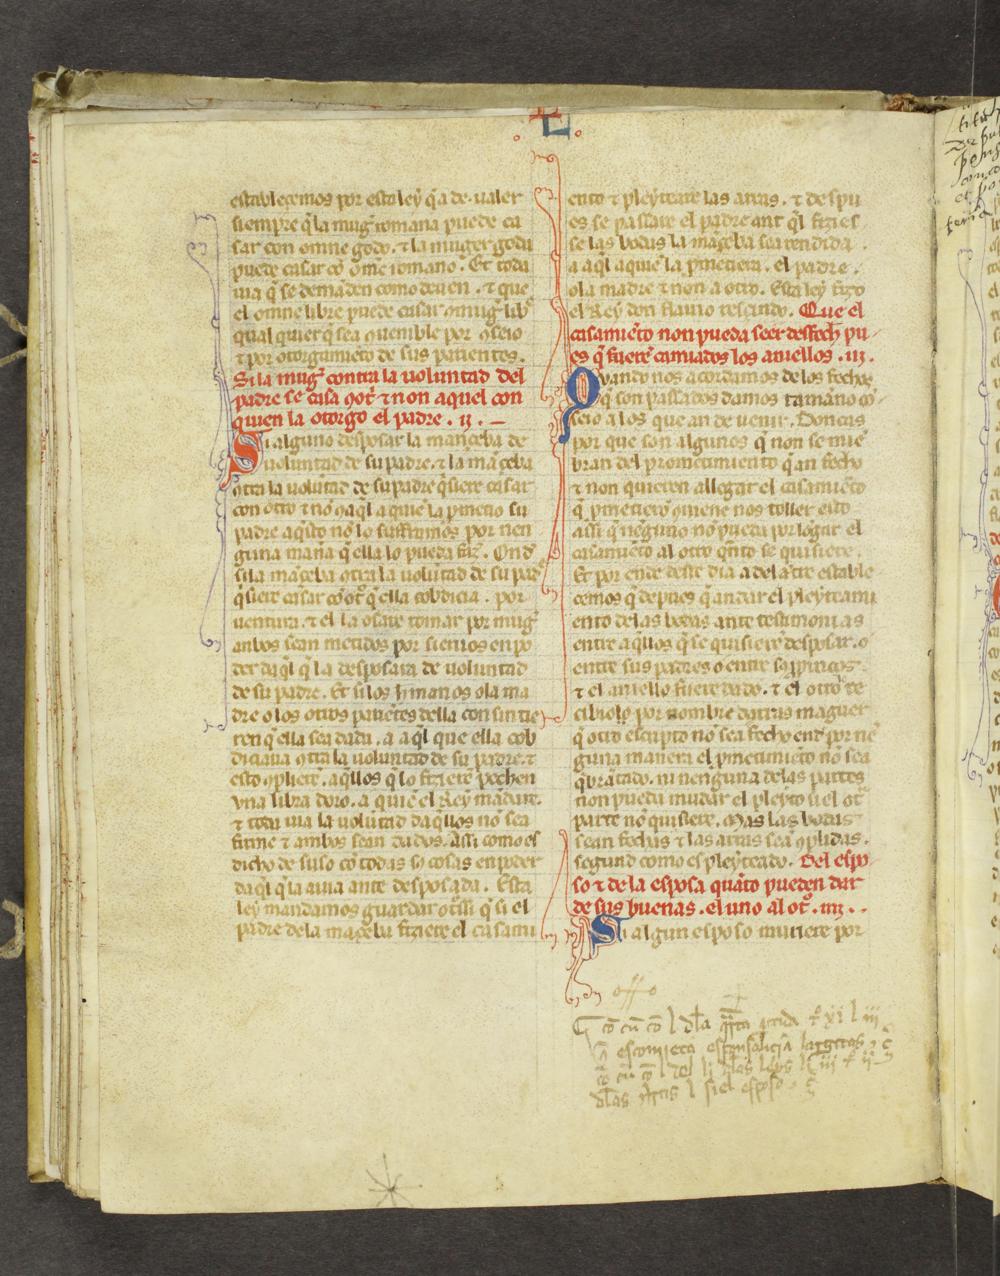 L
establecemos por esta ley q̃ a de ualer
siempre q̃ la mug̃ romana puede ca
sar con omne godo. ⁊ la muger goda
puede casar cõ om̃e romano. Et toda
uia q̃ se demãden como deuen. ⁊ que
el omne libre puede casar ꝯmug̃ lib̃
qual quier q̃ sea ꝯuenible por ꝯseio
⁊ por otorgamiẽto de sus parientes.
Si la mug̃ contra la uoluntad del
padre se casa ꝯot̃ ⁊ non aquel con
quien la otorgo el padre. ij.
Si alguno desposar la mançeba de
uoluntad de su padre. ⁊ la mãçeba
ꝯtra la uolũtad de su padre q̃siere casar
con otro ⁊ nõ ꝯaq̃l a quiẽ la p̃metio su
padre aq̃sto nõ lo suffrimos por nen
guna maña q̃ ella lo pueda faz̃. Ond̃
si la mãçeba ꝯtra la uolũtad de su pad̃
q̃siere casar cõ ot̃ q̃ ella cobdicia. por
uentura. ⁊ el la osare tomar por mug̃
anbos sean metidos por sieruos en po
der daq̃l q̃ la desposara de uoluntad
de su padre. Et si los h̃manos o la ma
dre o los otros pariẽtes della consintie
ren q̃ ella sea dada. a aq̃l que ella cob
diciaua ꝯtra la uoluntad de su padre. ⁊
esto ꝯplierẽ. aq̃llos q̃ lo fizierẽ pechen
vna libra doro. a quiẽ el Rey mãdare.
⁊ toda uia la uolũtad daq̃llos nõ sea
firme ⁊ ambos sean dados. assi como es
dicho de suso cõ todas sꝯ cosas en poder
daq̃l q̃ la auia ante desposada. Esta
ley mandamos guardar otssi q̃ si el
padre dela mãçeba fiziere el casami
ento ⁊ pleyteare las arras. ⁊ despu
es se passare el padre ant̃ q̃l fizies
se las bodas la mãçeba sea rendida
a aq̃l a quiẽ la p̃metiera. el padre.
o la madre ⁊ non a otro. Esta ley fizo
el Rey don flauio rescindo. Que el
casamiẽto non pueda seer desfech̃ pu
es q̃ fuerẽ camiados los aniellos. iij.
Quando nos acordamos de los fechos
q̃ son passados damos tamaño cõ
seio a los que an de uenir. Doncas
por que son algunos q̃ non se mie
bran del prometimiento q̃ an fecho
⁊ non quieren allegar el casamiẽto
q̃ p̃metierõ ꝯuiene nos toller esto
assi q̃ neguno nõ pueda porlõgar el
casamiẽto al otro q̃nto se quisiere.
Et por ende deste dia a delãtre estable
cemos q̃ depues q̃ andar el pleyteami
ento de las bodas ante testimonias
entre aq̃llos q̃ se quisierẽ desposar. o
entre sus padres o entre sꝯ p̃pincos.
⁊ el aniello fuere dado. ⁊ el otro re
cibiolo por nombre darras maguer
q̃ otro escripto nõ sea fecho end̃ por nẽ
guna manera el p̃metimiẽto nõ sea
q̃brãtado. ni nenguna delas partes
non pueda mudar el pleyto si el ot̃
parte nõ quisiere. Mas las bodas
sean fechas ⁊ las arras seã ꝯplidas.
segund como es pleyteado. Del espo
so ⁊ de la esposa quãto pueden dar
de sus buenas. el uno al ot̃. iiij.
Si algun esposo muriere por